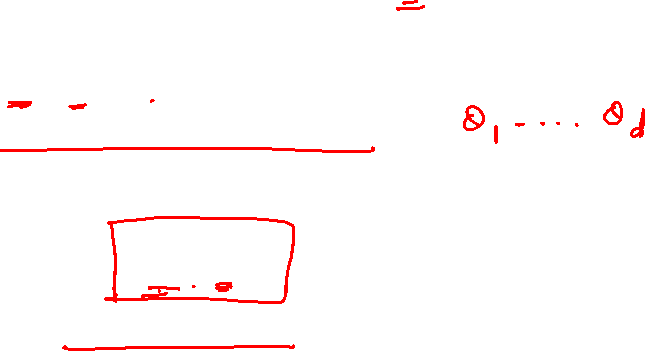 θ₁ - . . . . θ_d